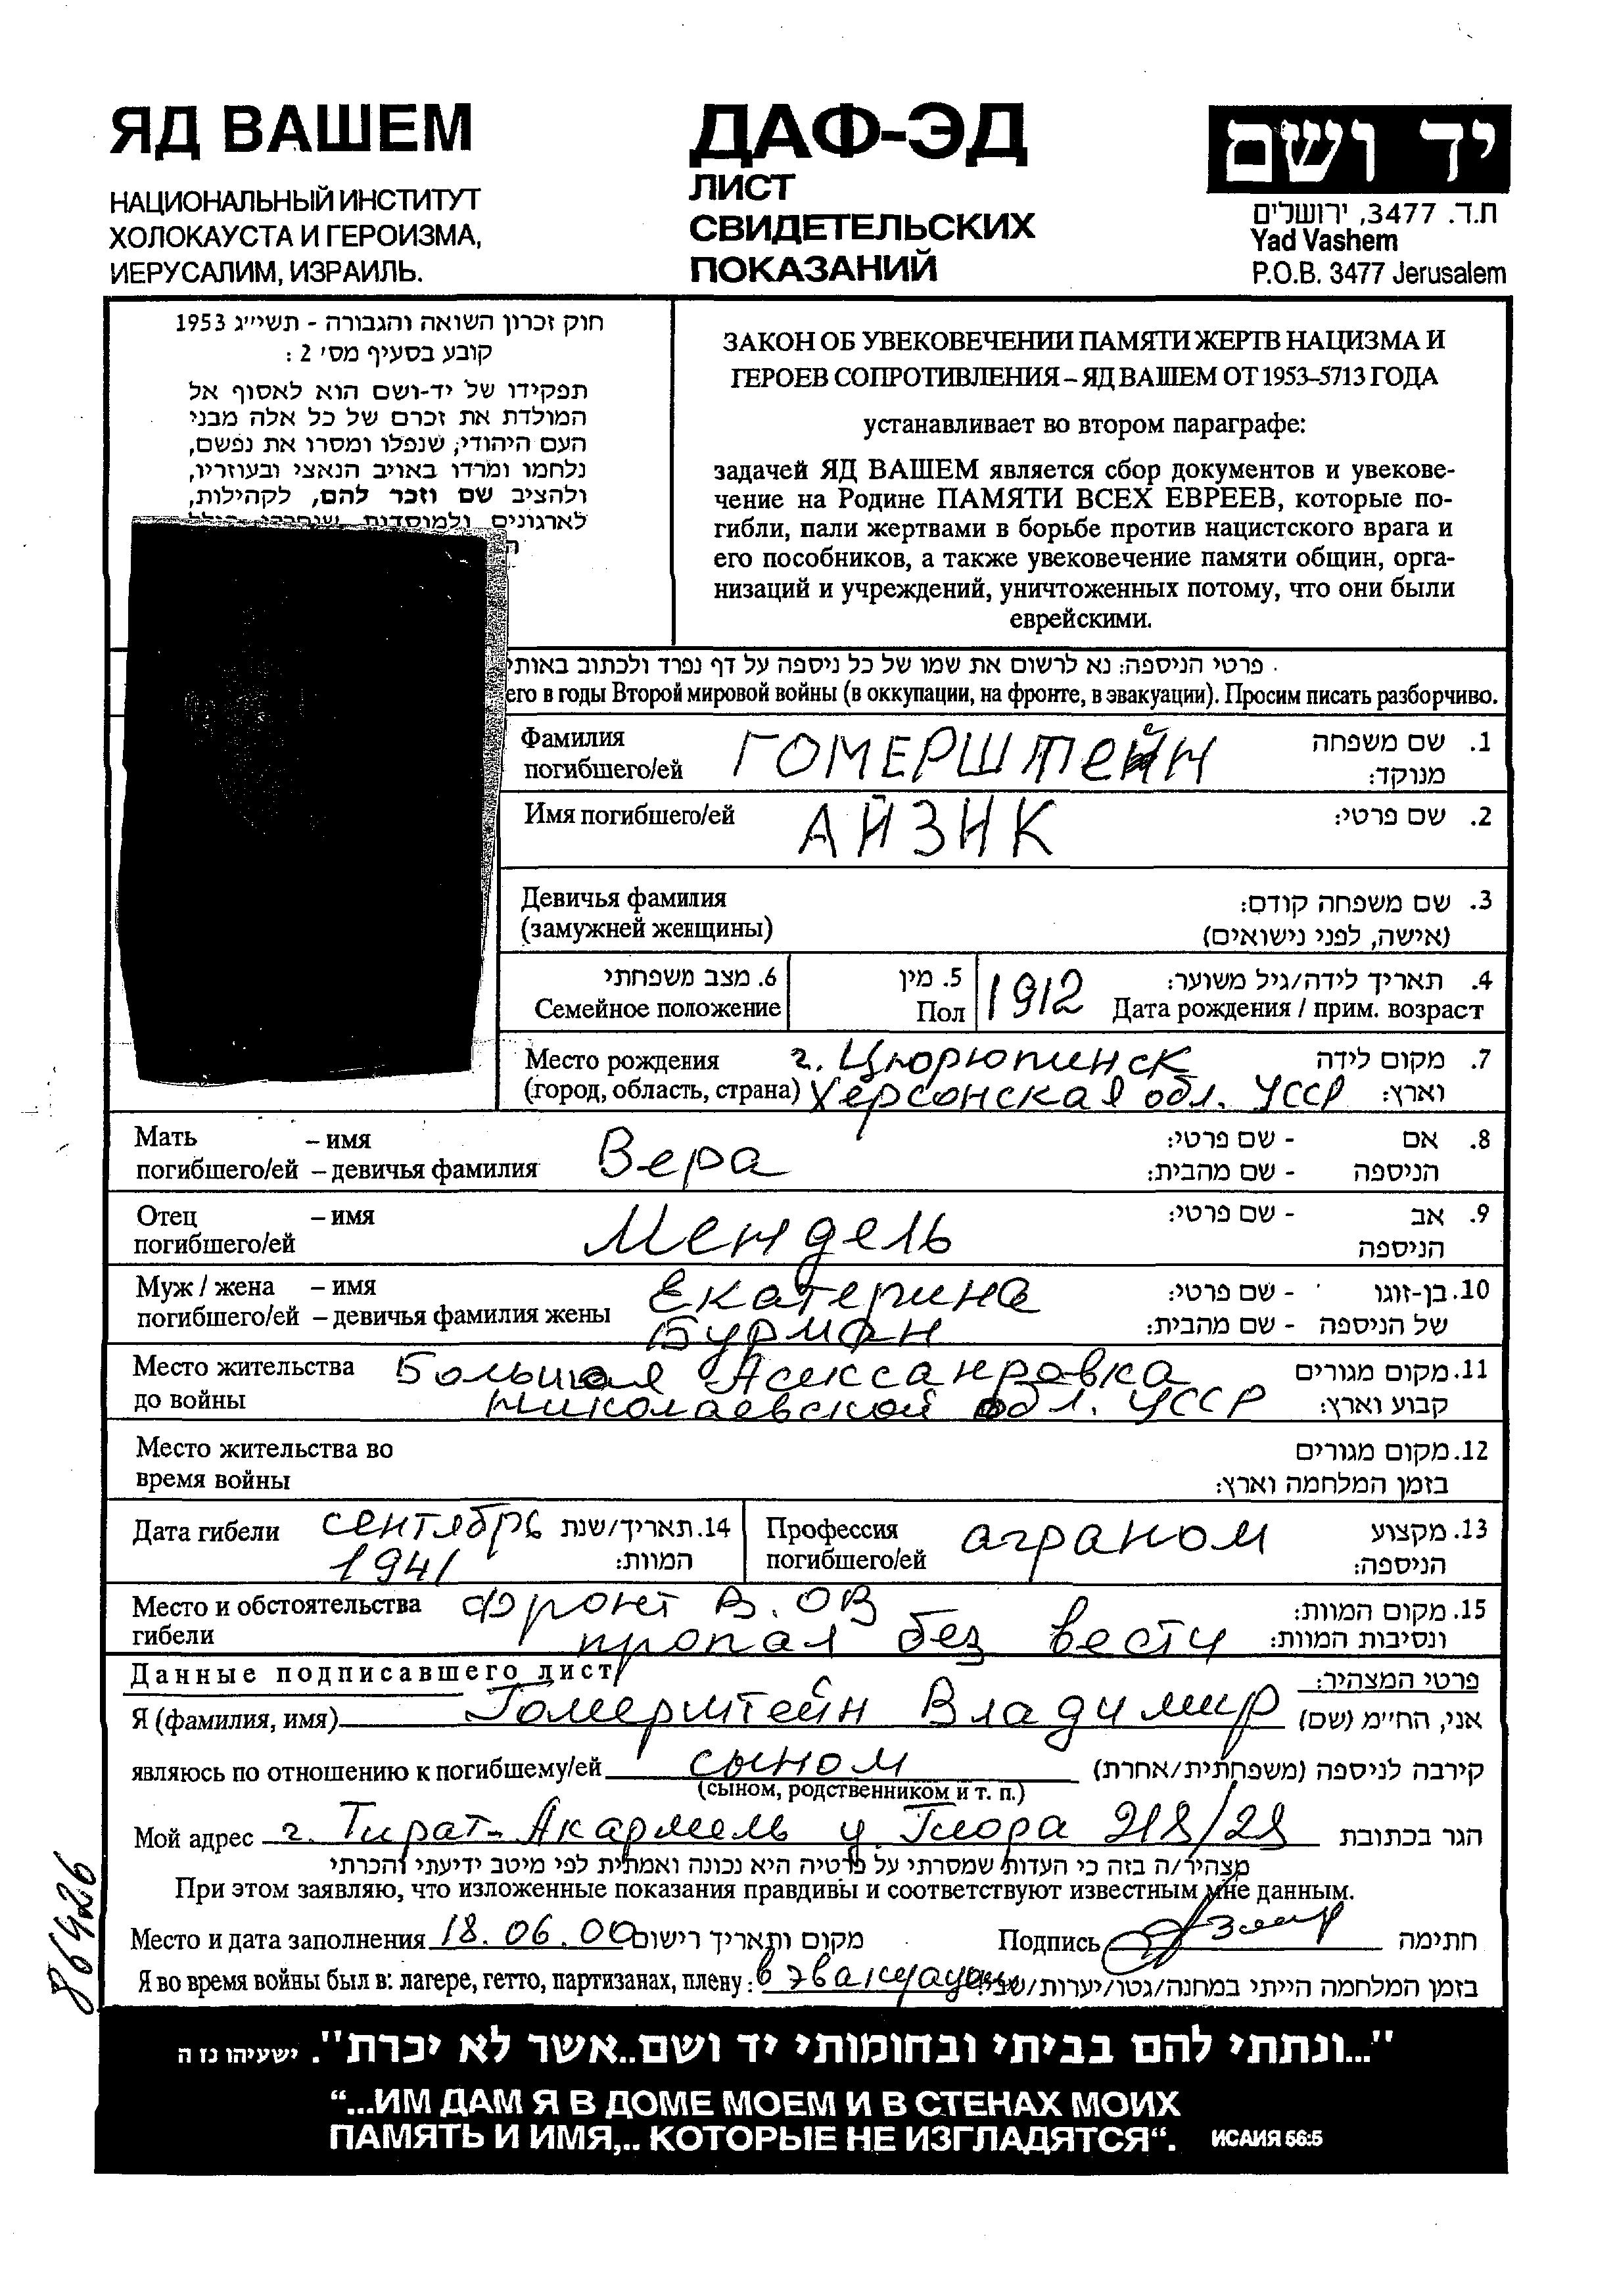 ЯД ВАШЕМ
НАЦИОНАЛЬНЫЙ ИНСТИТУТ
ХОЛОКАУСТА И ГЕРОИЗМА,
ИЕРУСАЛИМ, ИЗРАИЛЬ.
ДАФ-ЭД
ЛИСТ
СВИДЕТЕЛЬСКИХ
ПОКАЗАНИЙ
יד ושם
ת.ד. 3477, ירושלים
Yad Vashem
P.O.B. 3477 Jerusalem
חוק זכרון השואה והגבורה - תשי״ג 1953
קובע בסעיף מס׳ 2 :
תפקידו של יד-ושם הוא לאסוף אל
המולדת את זכרם של כל אלה מבני
העם היהודי, שנפלו ומסרו את נפשם,
נלחמו ומרדו באויב הנאצי ובעוזריו,
ולהציב שם וזכר להם, לקהילות,
לארגונים ולמוסדות
ЗАКОН ОБ УВЕКОВЕЧЕНИИ ПАМЯТИ ЖЕРТВ НАЦИЗМА И
ГЕРОЕВ СОПРОТИВЛЕНИЯ – ЯД ВАШЕМ ОТ 1953–5713 ГОДА
устанавливает во втором параграфе:
задачей ЯД ВАШЕМ является сбор документов и увекове-
чение на Родине ПАМЯТИ ВСЕХ ЕВРЕЕВ, которые по-
гибли, пали жертвами в борьбе против нацистского врага и
его пособников, а также увековечение памяти общин, орга-
низаций и учреждений, уничтоженных потому, что они были
еврейскими.
פרטי הניספה: נא לרשום את שמו של כל ניספה על דף נפרד ולכתוב באותי
его в годы Второй мировой войны (в оккупации, на фронте, в эвакуации). Просим писать разборчиво.
Фамилия ГОМЕРШТЕЙН 1. שם משפחה
погибшего/ей מנוקד:
Имя погибшего/ей АЙЗИК 2. שם פרטי:
Девичья фамилия 3. שם משפחה קודם:
(замужней женщины) (אישה, לפני נישואים)
6. מצב משפחתי 5. מין 4. תאריך לידה/גיל משוער:
Семейное положение Пол 1912 Дата рождения / прим. возраст
Место рождения г. Цюрюпинск 7. מקום לידה
(город, область, страна) Херсонская обл. УССР וארץ:
Мать – имя Вера 8. אם - שם פרטי:
погибшего/ей – девичья фамилия הניספה - שם מהבית:
Отец – имя Мендель 9. אב - שם פרטי:
погибшего/ей הניספה
Муж / жена – имя Екатерина 10. בן-זוגו - שם פרטי:
погибшего/ей – девичья фамилия жены Бурман של הניספה - שם מהבית:
Место жительства Большая Алексанровка 11. מקום מגורים
до войны Николаевской обл. УССР קבוע וארץ:
Место жительства во 12. מקום מגורים
время войны בזמן המלחמה וארץ:
Дата гибели сентябрь 14. תאריך/שנת Профессия аграном 13. מקצוע
1941 המוות: погибшего/ей הניספה:
Место и обстоятельства фронт В.ОВ 15. מקום המוות:
гибели пропал без вести ונסיבות המוות:
Данные подписавшего лист פרטי המצהיר:
Я (фамилия, имя) Гомерштейн Владимир אני, החי״מ (שם)
являюсь по отношению к погибшему/ей сыном קירבה לניספה (משפחתית/אחרת)
(сыном, родственником и т. п.)
Мой адрес г. Тират-Акармель у. Гиора 218/28 הגר בכתובת
מצהיר/ה בזה כי העדות שמסרתי על פרטיה היא נכונה ואמתית לפי מיטב ידיעתי והכרתי
При этом заявляю, что изложенные показания правдивы и соответствуют известным мне данным.
Место и дата заполнения 18.06.00 מקום ותאריך רישום Подпись חתימה
Я во время войны был в: лагере, гетто, партизанах, плену: в эвакуации בזמן המלחמה הייתי במחנה/גטו/יערות/שבי:
86426
"...ונתתי להם בביתי ובחומותי יד ושם..אשר לא יכרת". ישעיהו נז ה
“...ИМ ДАМ Я В ДОМЕ МОЕМ И В СТЕНАХ МОИХ
ПАМЯТЬ И ИМЯ,.. КОТОРЫЕ НЕ ИЗГЛАДЯТСЯ“. ИСАИЯ 56:5